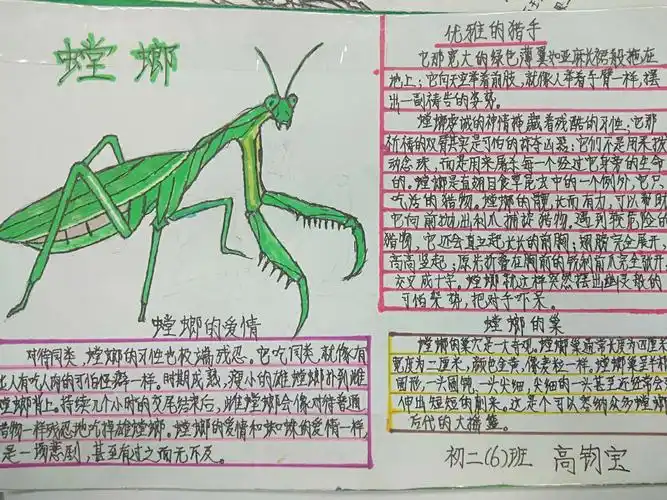 螳螂
优雅的猎手
它那宽大的绿色薄翼如亚麻长裙般拖在
地上；它向天空举着前肢，就像人举着手臂一样，摆
出一副祷告的姿势。
螳螂虔诚的神情掩藏着残酷的习性，它那
祈祷的双臂其实是可怕的掠夺凶器：它们不是用来拨
动念珠，而是用来屠杀每一个经过它身旁的生命
的。螳螂是直翅目食草昆虫中的一个例外，它只
吃活的猎物。螳螂的腰长而有力，可以帮助
它向前抛出利爪捕捉猎物。遇到较危险的
猎物，它还会直立起长长的前胸；翅膀完全展开，
高高竖起；原先折叠在胸前的锐利前爪完全张开，
交叉成十字。螳螂就这样突然摆出幽灵般的
可怕架势，把对手吓呆。
螳螂的爱情
对待同类，螳螂的习性也极端残忍。它吃同类，就像有
出人有吃人肉的可怕怪癖一样。时期成熟，瘦小的雄螳螂扑到雌
螳螂背上。持续几个小时的交尾结束后，雌螳螂会像对待普通
猎物一样残忍地吃掉雄螳螂。螳螂的爱情和蜘蛛的爱情一样，
是一场悲剧，甚至有过之而无不及。
螳螂的巢
螳螂的巢穴是一大奇观。螳螂巢通常长度为四厘米
宽度为二厘米，颜色金黄，像麦粒一样。螳螂巢呈半椭
圆形，一头圆钝，一头尖细，尖细的一头甚至还经常会
伸出短短的
这是个可以容纳众多螳螂
后代的大
初二(6)班 高钧宝